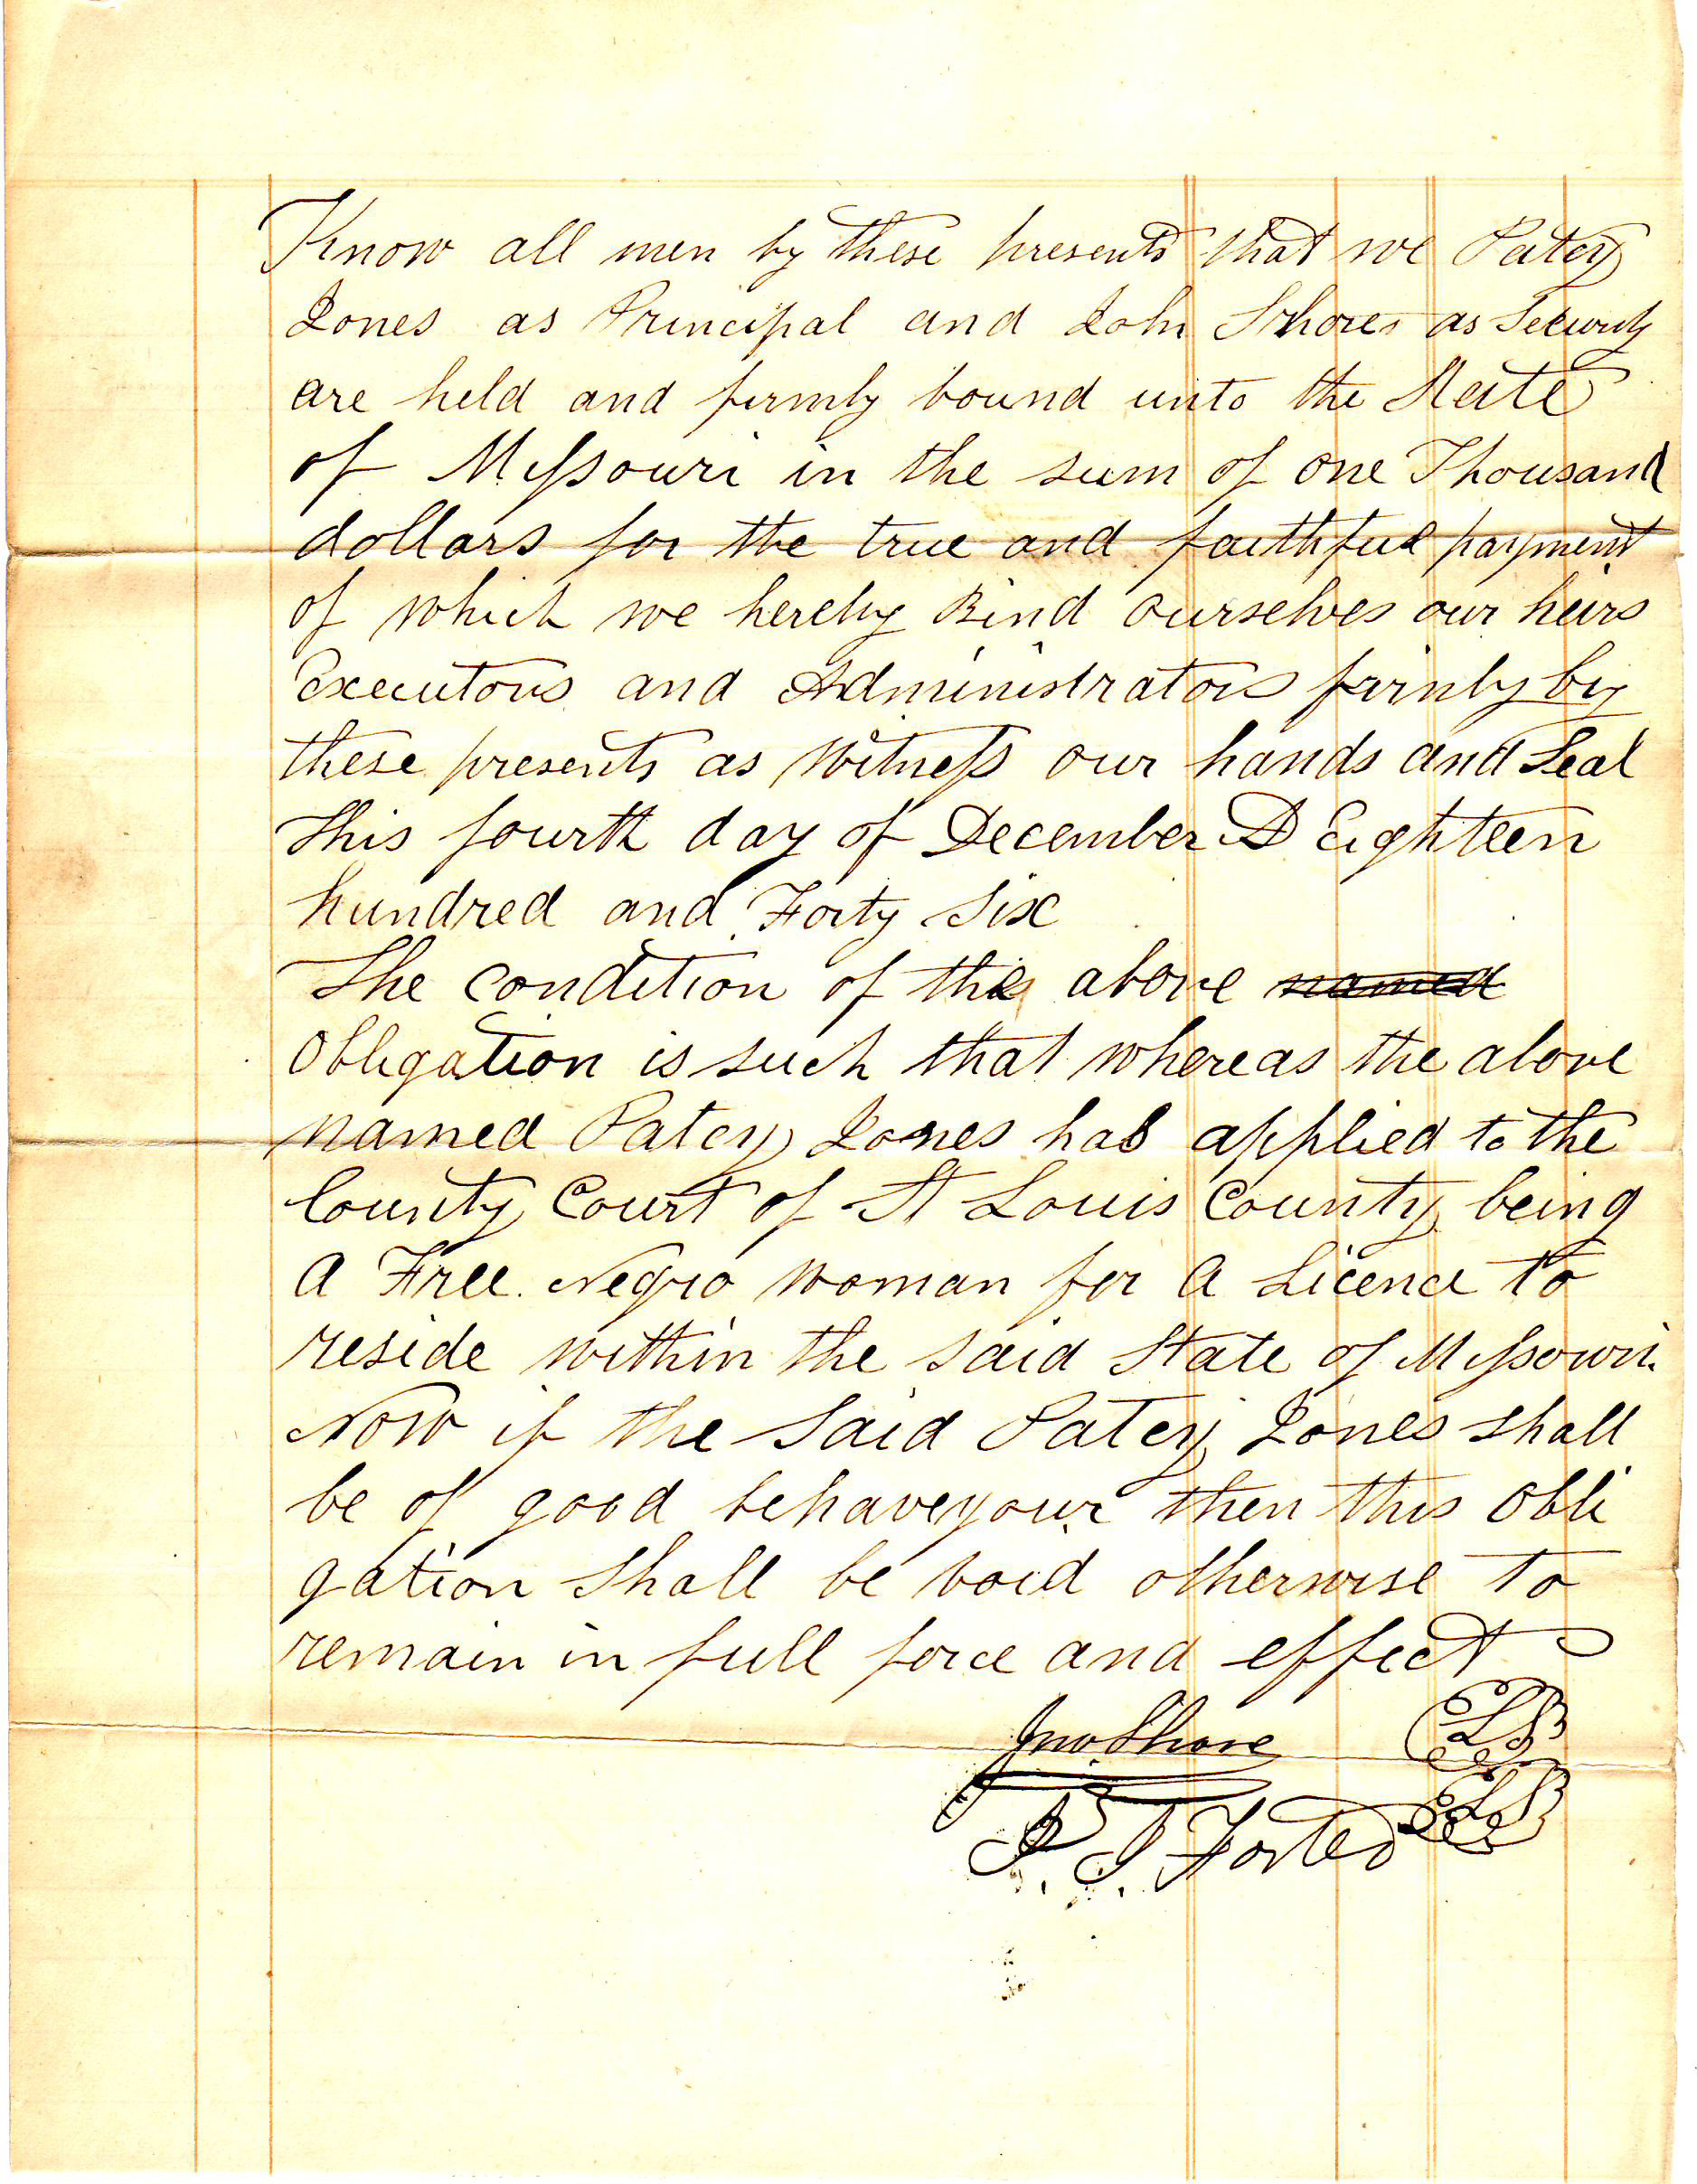 Know all men by these presents that we Patcy
Jones as Principal and John Shores as Security
are held and firmly bound unto the State
of Missouri in the sum of one Thousand
dollars for the true and faithful payment
of which we hereby Bind ourselves our heirs
executors and Administrators firmly by
these presents as Witness our hands and Seal
This fourth day of December AD Eighteen
hundred and Forty Six
The condition of the above named
Obligation is such that whereas the above
named Patcy Jones has applied to the
County Court of St Louis County being
a Free Negro woman for a Licence to
reside within the said State of Missouri.
Now if the Said Patcy Jones shall
be of good behaveyour then this Obli
gation Shall be void otherwise to
remain in full force and effect
Jno. Shore LS
P. S. Foster LS